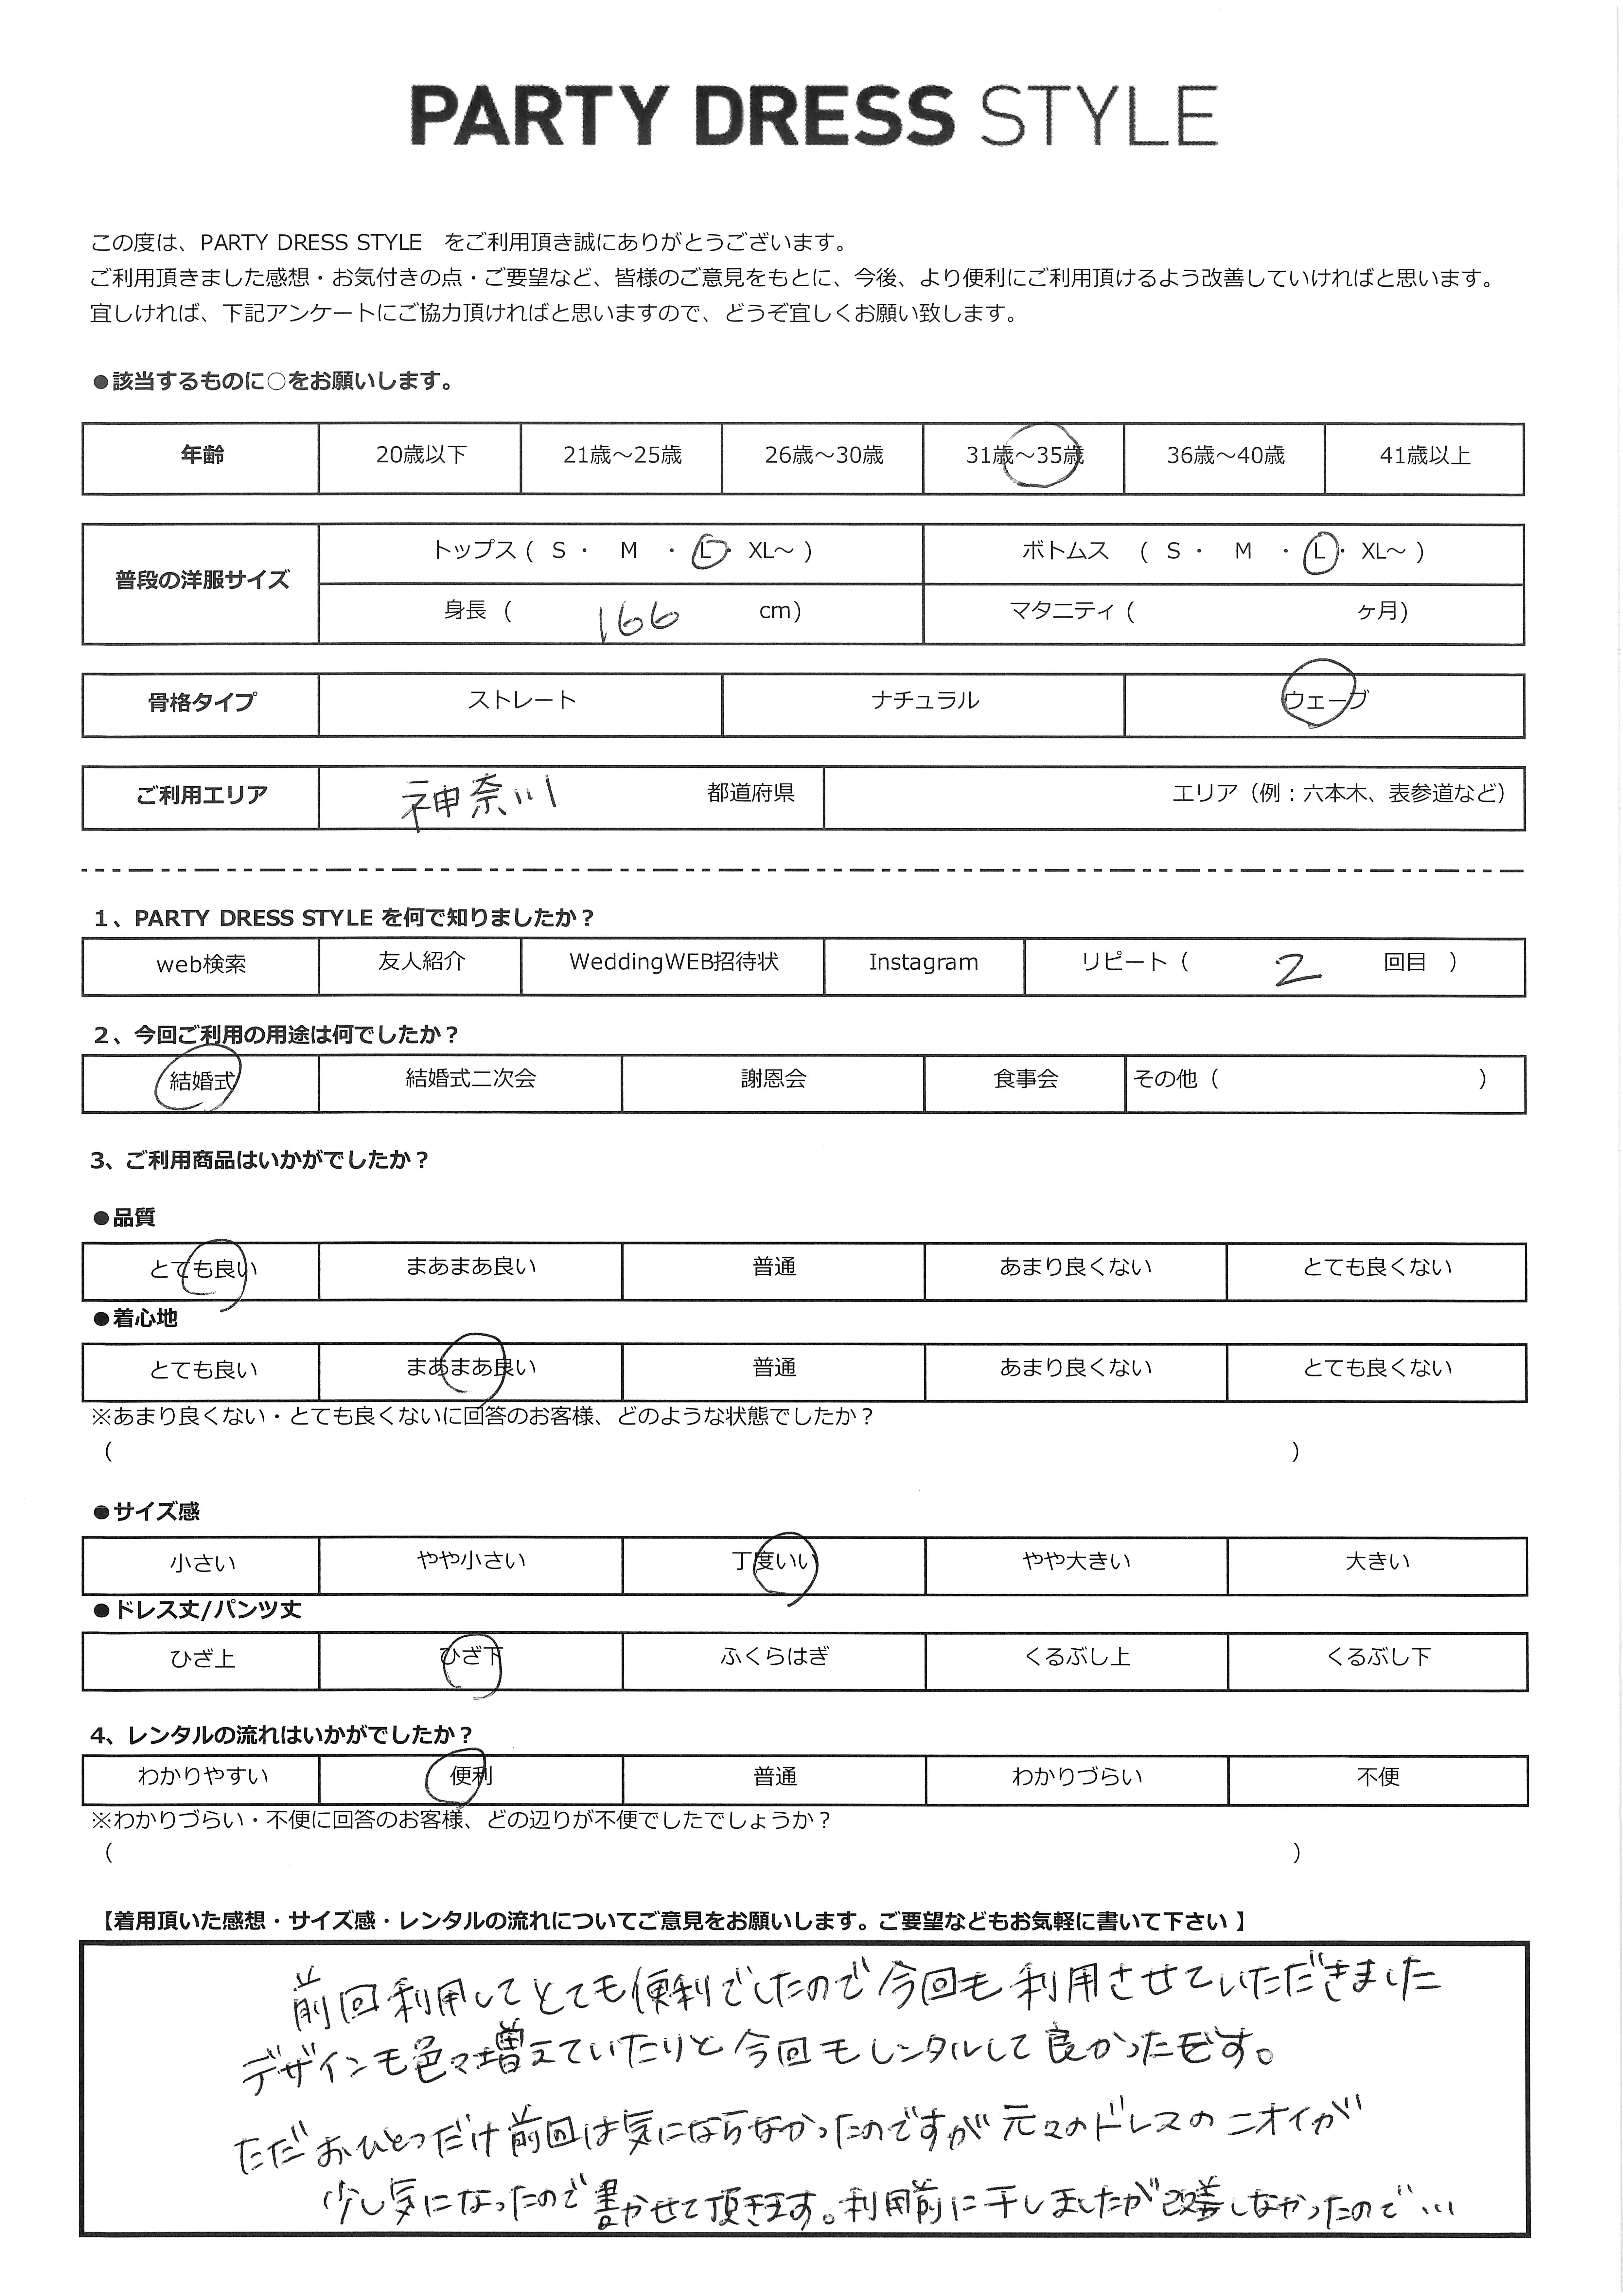 PARTY DRESS STYLE
この度は、PARTY DRESS STYLE　をご利用頂き誠にありがとうございます。
ご利用頂きました感想・お気付きの点・ご要望など、皆様のご意見をもとに、今後、より便利にご利用頂けるよう改善していければと思います。
宜しければ、下記アンケートにご協力頂ければと思いますので、どうぞ宜しくお願い致します。
●該当するものに○をお願いします。
年齢 20歳以下 21歳～25歳 26歳～30歳 31歳～35歳 36歳～40歳 41歳以上
普段の洋服サイズ
トップス ( S ・ M ・ L ・ XL～ ) ボトムス ( S ・ M ・ L ・ XL～ )
身長 ( 166 cm) マタニティ ( ヶ月)
骨格タイプ ストレート ナチュラル ウェーブ
ご利用エリア 神奈川 都道府県 エリア（例：六本木、表参道など）
1、PARTY DRESS STYLE を何で知りましたか？
web検索 友人紹介 WeddingWEB招待状 Instagram リピート（ 2 回目 ）
2、今回ご利用の用途は何でしたか？
結婚式 結婚式二次会 謝恩会 食事会 その他（ ）
3、ご利用商品はいかがでしたか？
●品質
とても良い まあまあ良い 普通 あまり良くない とても良くない
●着心地
とても良い まあまあ良い 普通 あまり良くない とても良くない
※あまり良くない・とても良くないに回答のお客様、どのような状態でしたか？
（ ）
●サイズ感
小さい やや小さい 丁度いい やや大きい 大きい
●ドレス丈/パンツ丈
ひざ上 ひざ下 ふくらはぎ くるぶし上 くるぶし下
4、レンタルの流れはいかがでしたか？
わかりやすい 便利 普通 わかりづらい 不便
※わかりづらい・不便に回答のお客様、どの辺りが不便でしたでしょうか？
（ ）
【着用頂いた感想・サイズ感・レンタルの流れについてご意見をお願いします。ご要望などもお気軽に書いて下さい 】
前回利用してとても便利でしたので今回も利用させていただきました
デザインも色々増えていたりと今回もレンタルして良かったです。
ただおひとつだけ前回は気にならなかったのですが元々のドレスのニオイが
少し気になったので書かせて頂きます。利用前に干しましたが改善しなかったので…